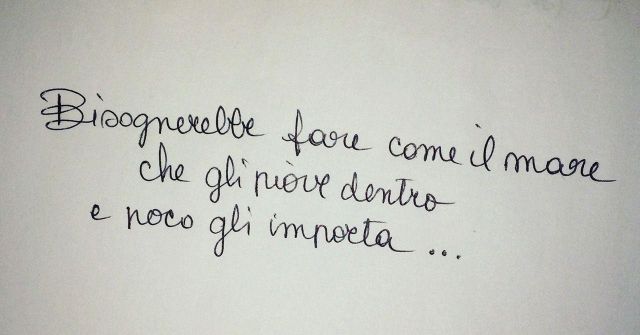 Bisognerebbe fare come il mare
che gli piove dentro
e poco gli importa ...